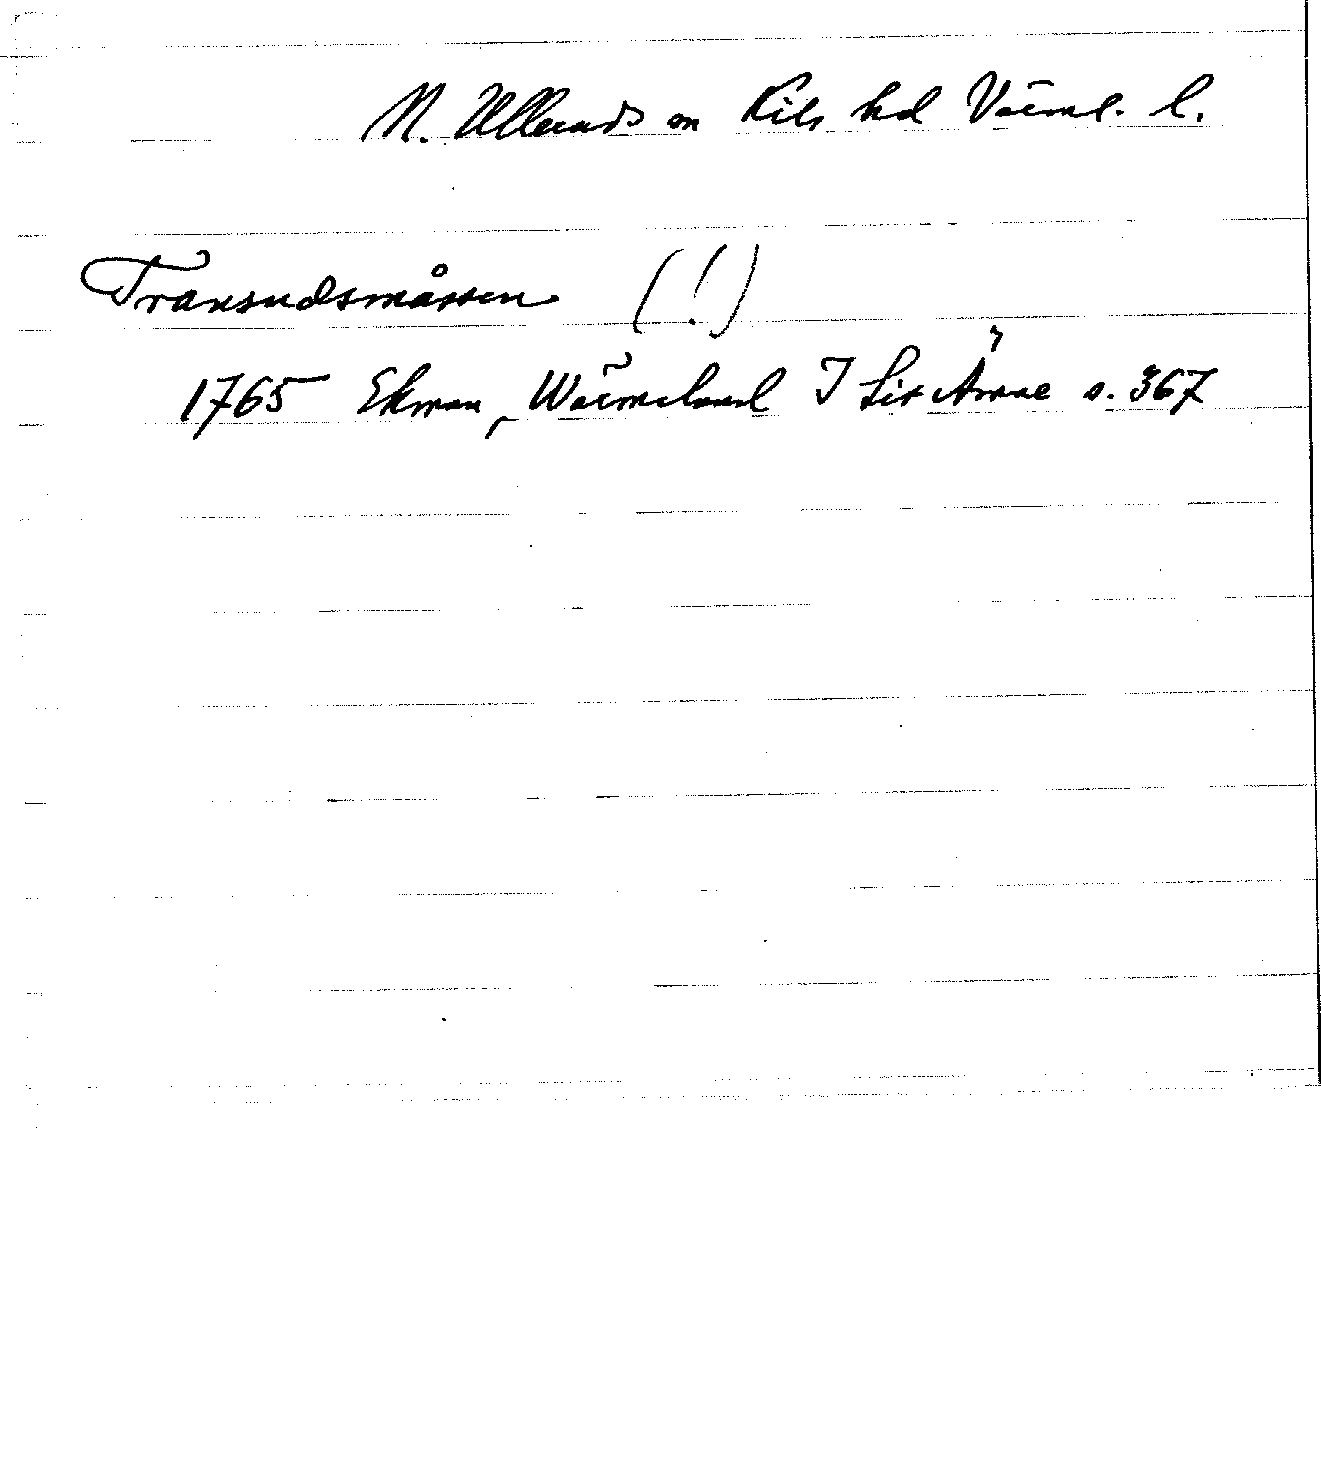 N. Ulleruds sn Kils hd Värml. l.
Transudsmåssen (!)
1765 Ekman, Wärmeland I s. 367